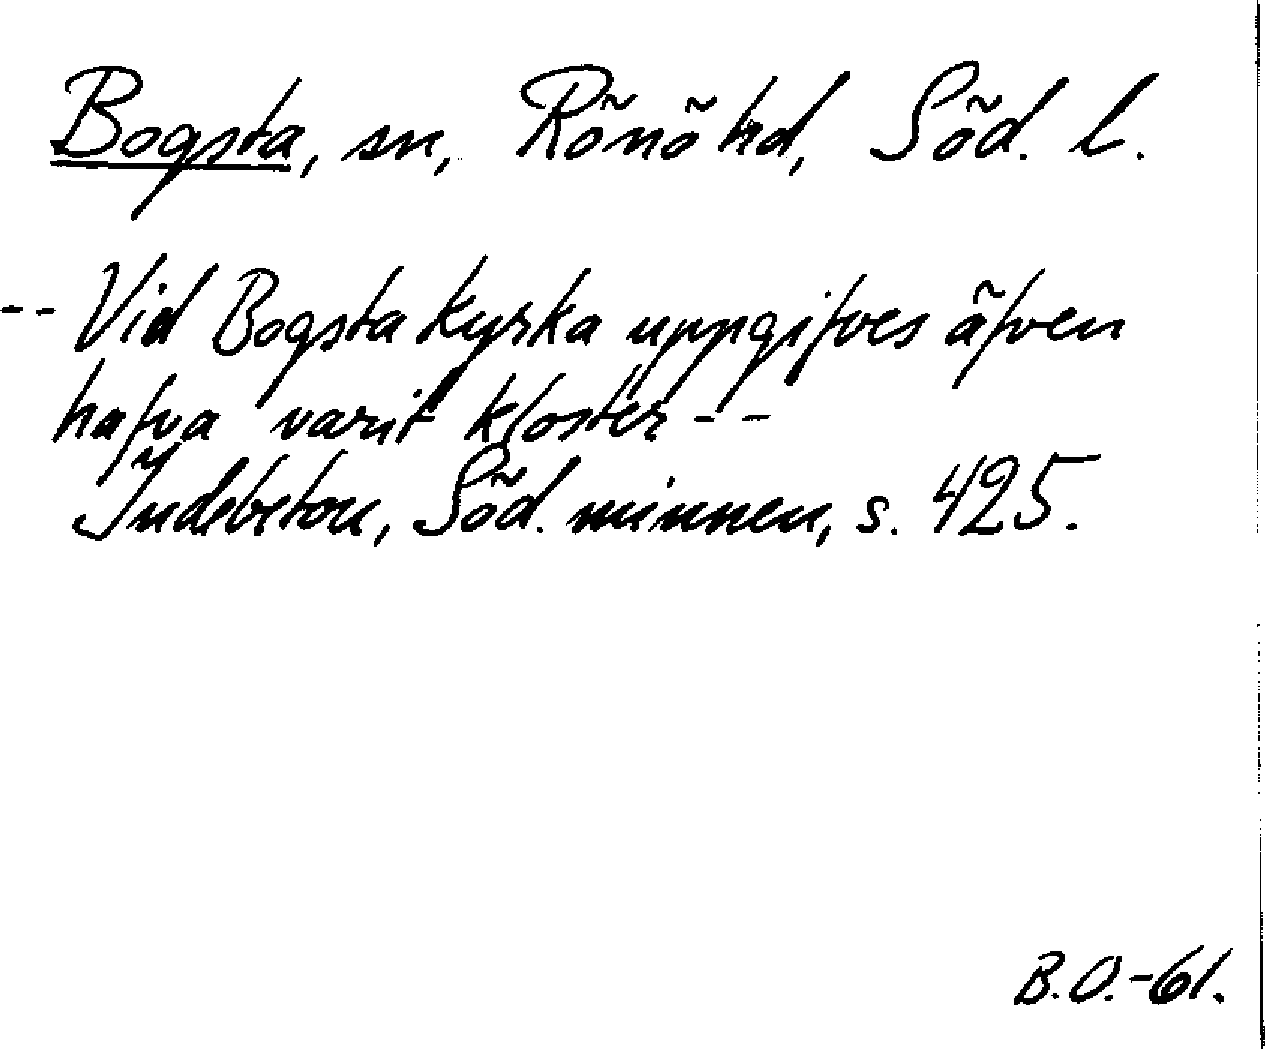 Bogsta, sn, Rönö hd, Söd. l.
-- Vid Bogsta kyrka uppgifves äfven
hafva varit kloster --
Indebetou, Söd. minnen, s. 425.
B.O.-61.